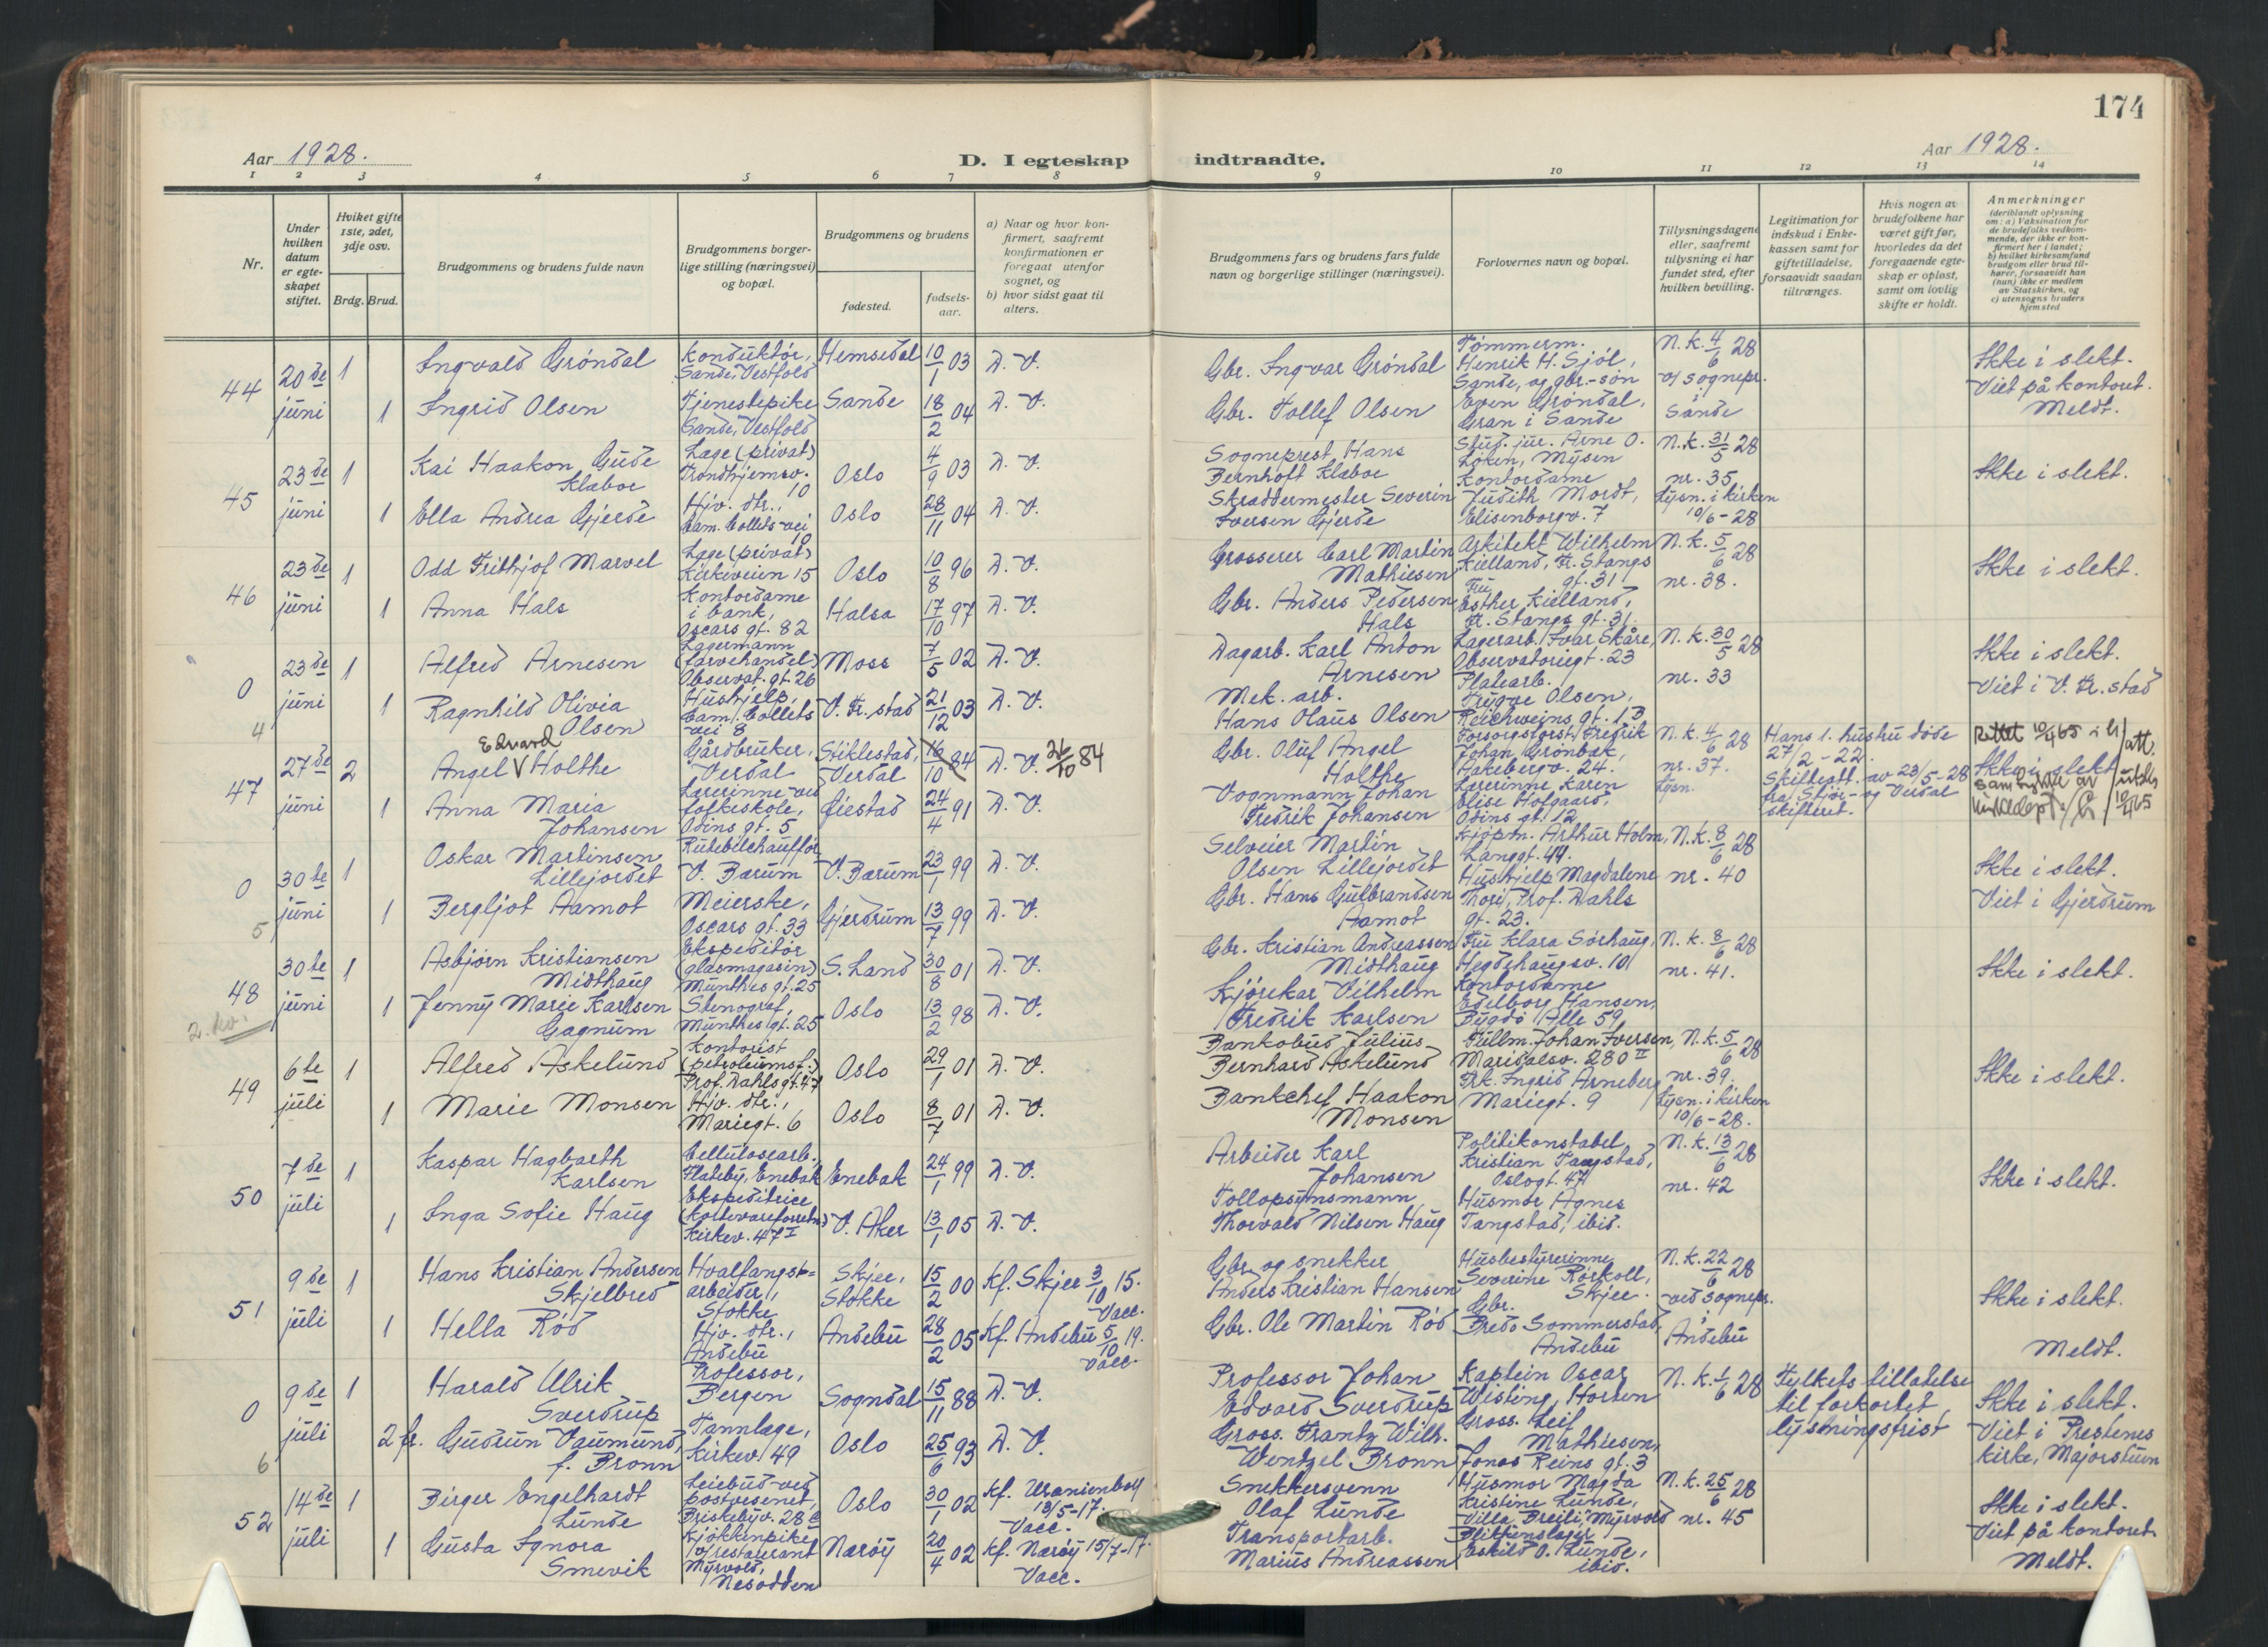 174
Aar 1928.
D. I egteskap indtraadte.
Aar 1928.
1 2 3 4 5 6 7 8 9 10 11 12 13 14
Nr.
Under hvilken datum er egteskapet stiftet.
Hviket gifte 1ste, 2det, 3dje osv.
Brdg. Brud.
Brudgommens og brudens fulde navn
Brudgommens borgerlige stilling (næringsvei) og bopæl.
Brudgommens og brudens
fødested.
fødselsaar.
a) Naar og hvor konfirmert, saafremt konfirmationen er foregaat utenfor sognet, og
b) hvor sidst gaat til alters.
Brudgommens fars og brudens fars fulde navn og borgerlige stillinger (næringsvei).
Forlovernes navn og bopæl.
Tillysningsdagene eller, saafremt tillysning ei har fundet sted, efter hvilken bevilling.
Legitimation for indskud i Enkekassen samt for giftetilladelse, forsaavidt saadan tiltrænges.
Hvis nogen av brudefolkene har været gift før, hvorledes da det foregaaende egteskap er opløst, samt om lovlig skifte er holdt.
Anmerkninger
(deriblandt oplysning om: a) Vaksination for de brudefolks vedkommende, der ikke er konfirmert her i landet; b) hvilket kirkesamfund brudgom eller brud tilhører, forsaavidt han (hun) ikke er medlem av Statskirken, og c) utensogns bruders hjemsted
44
20de juni
1
Ingvald Grøndal
Konduktør, Sande, Vestfold
Hemsedal
10/1 03
D. V.
Gbr. Ingvar Grøndal
Tømmerm. Henrik H. Sjøl, Sande, og gbr.-søn
N. k. 4/6 28
v/ sognepr. i Sande
Ikke i slekt.
Viet på kontoret.
Meldt.
1
Ingrid Olsen
Tjenestepike Sande, Vestfold
Sande
18/2 04
D. V.
Gbr. Tollef Olsen
Even Grøndal, Gran i Sande
45
23de juni
1
Kai Haakon Gude Klaboe
Læge (privat) Trondhjemsv. 10
Oslo
4/9 03
D. V.
Sogneprest Hans Bernhoft Klaboe
Stud. jur. Arne O. Løken, Mysen
N. k. 31/5 28
nr. 35
Lysn. i kirken 10/6-28
Ikke i slekt.
1
Ella Andrea Gjerde
Hjv. dtr., Cam. Colletts vei 10
Oslo
28/11 04
D. V.
Skræddermester Severin Iversen Gjerde
Kontordame Judith Mordt, Elisenborgv. 7
46
23de juni
1
Odd Frithjof Marvel
Læge (privat) Kirkeveien 15
Oslo
10/8 96
D. V.
Grosserer Carl Martin Mathiesen
Arkitekt Wilhelm Kielland, Fr. Stangs gt. 31
N. k. 5/6 28
nr. 38.
Ikke i slekt.
1
Anna Hals
Kontordame i bank, Oscars gt. 82
Halsa
17/10 97
D. V.
Gbr. Anders Pedersen Hals
Fru Esther Kielland, Fr. Stangs gt. 31.
0
4
23de juni
1
Alfred Arnesen
Lagermann (farvehandel) Observat. gt. 26
Moss
7/5 02
D. V.
Dagarb. Karl Anton Arnesen
Lagerarb. Ivar Skåre, Observatoriegt. 23
N. k. 30/5 28
nr. 33
Ikke i slekt.
Viet i V. Fr.stad
1
Ragnhild Olivia Olsen
Hushjelp, Cam. Colletts vei 8
V. Fr.stad
21/12 03
D. V.
Mek. arb. Hans Olaus Olsen
Platearb. Trygve Olsen, Reichweins gt. 13
47
27de juni
2
Angel Edvard Holthe
Gårdbruker, Verdal
Stiklestad, Verdal
16/10 84
D. V. 26/10 84
Gbr. Oluf Angel Holthe
Forsorgsforst. Fredrik Johan Grønbæk, Hakebergv. 24.
N. k. 4/6 28
nr. 37.
Lysn.
Hans 1. hustru døde 27/2-22.
Skifteatt. av 23/5-28 fra Stjør- og Verdal skifteret.
Ikke i slekt
Rettet 10/4 65
1
Anna Maria Johansen
Lærerinne ved folkeskole, Odins gt. 5
Giestad
24/4 91
D. V.
Vognmann Johan Fredrik Johansen
Lærerinne Karen Elise Hofgaard, Odins gt. 12
0
5
30te juni
1
Oskar Martinsen Lillejordet
Rutebilchauffør V. Bærum
V. Bærum
23/1 99
D. V.
Selveier Martin Olsen Lillejordet
Kjøpm. Arthur Holm, Langgt. 44.
N. k. 8/6 28
nr. 40
Ikke i slekt.
Viet i Gjerdrum
1
Bergljot Aamot
Meierske, Oscars gt. 33
Gjerdrum
13/7 99
D. V.
Gbr. Hans Gulbrandsen Aamot
Hushjelp Magdalene Thori, Prof. Dahls gt. 23.
48
2. kv.
30te juni
1
Asbjørn Kristiansen Midthaug
Ekspeditør (glasmagasin) Munthes gt. 25
S. Land
30/8 01
D. V.
Gbr. Kristian Andreassen Midthaug
Fru Klara Sørhaug, Hegdehaugsv. 10
N. k. 8/6 28
nr. 41.
Ikke i slekt.
1
Jenny Marie Karlsen Gagnum
Stenograf, Munthes gt. 25
Oslo
13/2 98
D. V.
Kjørekar Vilhelm Fredrik Karlsen
Kontordame Edelborg Hansen, Bygdø Alle 59
49
6te juli
1
Alfred Askelund
Kontorist (petroleumsf.) Prof. Dahls gt. 47
Oslo
29/1 01
D. V.
Bankobud Julius Bernhard Askelund
Fullm. Johan Iversen, Maridalsv. 280 II
N. k. 5/6 28
nr. 39.
Lysn. i kirken 10/6-28.
Ikke i slekt.
1
Marie Monsen
Hjv. dtr., Mariegt. 6
Oslo
8/7 01
D. V.
Bankchef Haakon Monsen
Frk. Ingrid Arneberg Mariegt. 9
50
7de juli
1
Kaspar Hagbarth Karlsen
Cellulosearb., Flateby, Enebak
Enebak
24/1 99
D. V.
Arbeider Karl Johansen
Politikonstabel Kristian Tangstad, Oslogt. 47
N. k. 13/6 28
nr. 42
Ikke i slekt.
1
Inga Sofie Haug
Ekspeditrice (kortevareforretn.) Kirkev. 47 I
V. Aker
13/1 05
D. V.
Tollopsynsmann Thorvald Nilsen Haug
Husmor Agnes Tangstad, ibid.
51
9de juli
1
Hans Kristian Andersen Skjelbred
Hvalfangstarbeider, Stokke
Skjee, Stokke
15/2 00
Kf. Skjee 3/10 15. Vacc.
Gbr. og snekker Anders Kristian Hansen
Husbestyrerinne Severine Rørkoll, Skjee.
N. k. 22/6 28
ved sognepr. i Andebu
Ikke i slekt.
Meldt.
1
Hella Rød
Hjv. dtr., Andebu
Andebu
28/2 05
Kf. Andebu 5/10 19. Vacc.
Gbr. Ole Martin Rød
Gbr. Bredo Sommerstad, Andebu
0
6
9de juli
1
Harald Ulrik Sverdrup
Professor, Bergen
Sogndal
15/11 88
D. V.
Professor Johan Edvard Sverdrup
Kaptein Oscar Wisting, Horten
N. k. 1/6 28
Fylkets tillatelse til forkortet lysningsfrist
Ikke i slekt.
Viet i Prestenes kirke, Majorstuen
2 fr.
Gudrun Vaumund, f. Bronn
Tannlæge, Kirkev. 49
Oslo
25/6 93
D. V.
Gross. Frantz Wilh. Wentzel Bronn
Gross. Leif Mathiesen, Jonas Reins gt. 3
52
14de juli
1
Birger Engelhardt Lunde
Leiebud ved postvesenet, Briskebyv. 28 c
Oslo
30/1 02
Kf. Uranienborg 13/5-17. Vacc.
Snekkersvenn Olaf Lunde
Husmor Magda Kristine Lunde, Villa Breili, Myrvold
N. k. 25/6 28
nr. 45
Ikke i slekt.
Viet på kontoret.
Meldt.
1
Gusta Ignora Smevik
Kjøkkenpike v/ restaurant Myrvold, Nesodden
Nærøy
20/4 02
Kf. Nærøy 15/7-17. Vacc.
Transportarb. Marius Andreassen
Blikkenslager Eskild O. Lunde, ibid.